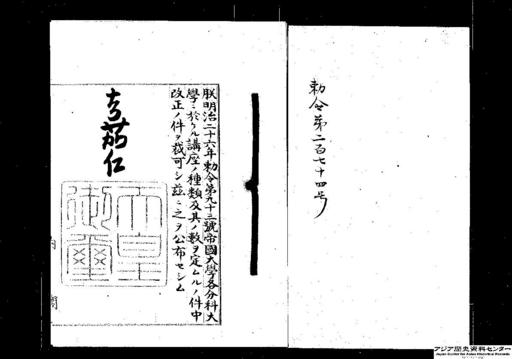 勅令第二百七十四号
朕明治二十六年勅令第九十三號帝國大學各分科大
學ニ於ケル講座ノ種類及其ノ數ヲ定ムルノ件中
改正ノ件ヲ裁可シ茲ニ之ヲ公布セシム
天皇
御璽
内
閣
アジア歴史資料センター
Japan Center for Asian Historical Records